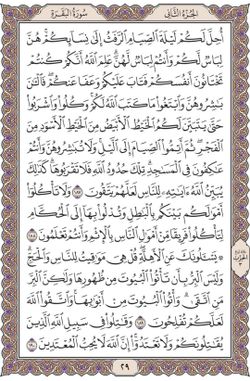 الجزء الثاني
سورة البقرة
أحل لكم ليلة الصيام الرفث إلى نسائكم هن
لباس لكم وأنتم لباس لهن علم الله أنكم كنتم
تختانون أنفسكم فتاب عليكم وعفا عنكم فالئن
بشروهن وابتغوا ما كتب الله لكم وكلوا واشربوا
حتى يتبين لكم الخيط الأبيض من الخيط الأسود من
الفجر ثم أتموا الصيام إلى اليل ولا تبشروهن وأنتم
عكفون في المسجد تلك حدود الله فلا تقربوها كذلك
يبين الله ءايته للناس لعلهم يتقون ١٨٧ ولا تأكلوا
أمولكم بينكم بالبطل وتدلوا بها إلى الحكام
لتأكلوا فريقا من أمول الناس بالإثم وأنتم تعلمون ١٨٨
يسئلونك عن الأهلة قل هي موقيت للناس والحج
وليس البر بأن تأتوا البيوت من ظهورها ولكن البر
من اتقى وأتوا البيوت من أبوبها واتقوا الله
لعلكم تفلحون ١٨٩ وقتلوا في سبيل الله الذين
يقتلونكم ولا تعتدوا إن الله لا يحب المعتدين ١٩٠
٢٩